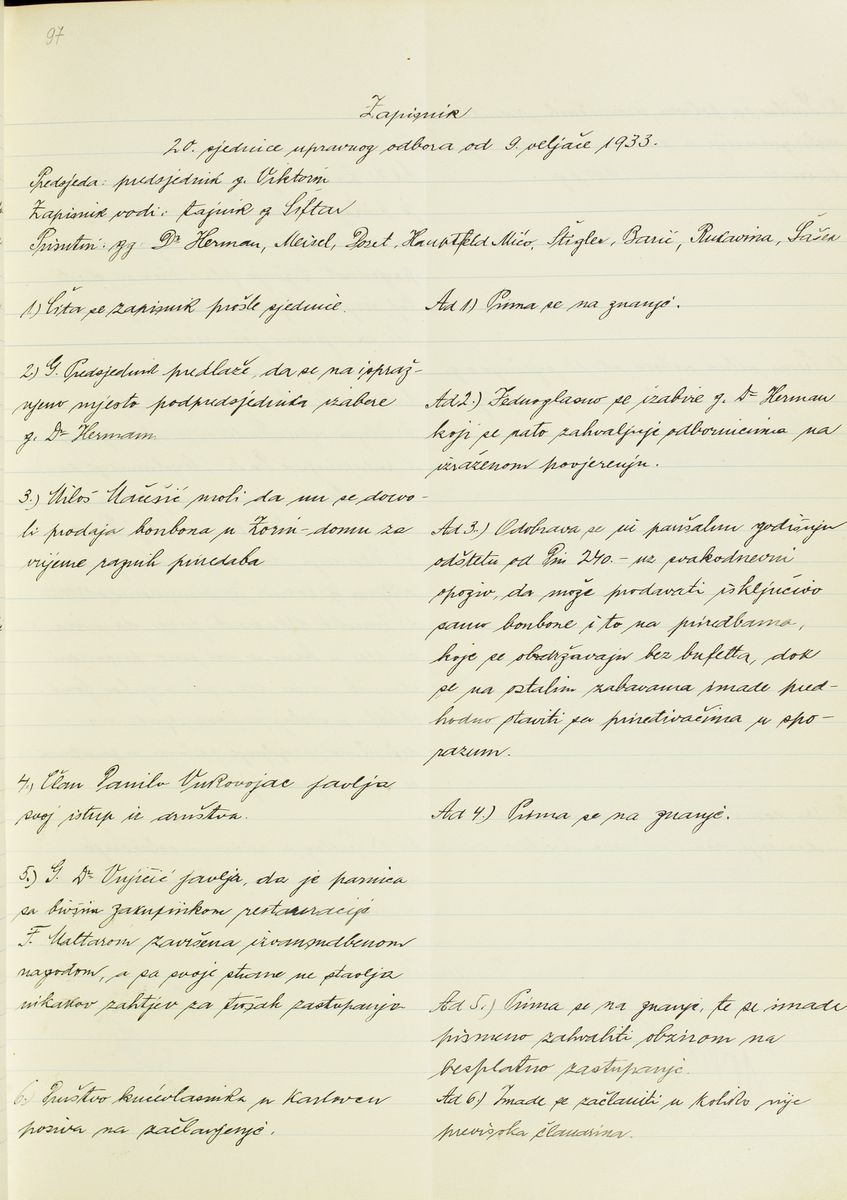 97
Zapisnik
20. sjednice upravnog odbora od 9. veljače 1933.
Predsjeda: predsjednik g. Viktorin
Zapisnik vodi: tajnik g. Šiftar
Prisutni: gg. Dr Herman, Meisel, Dozet, Hauptfeld Mićo, Štigler, Barić, Rukavina, Šašek
1.) Čita se zapisnik prošle sjednice.
Ad 1) Prima se na znanje.
2.) G. Predsjednik predlaže, da se na ispraž-
njeno mjesto podpredsjednika izabere
g. Dr Herman.
Ad 2.) Jednoglasno se izabire g. Dr Herman
koji se zato zahvaljuje odbornicima na
izraženom povjerenju.
3.) Miloš Maušić moli da mu se dozvo-
li prodaja bonbona u Zorin-domu za
vrijeme raznih priredaba
Ad 3.) Odobrava se uz paušalnu godišnju
odštetu od Din 240.- uz svakodnevni
opoziv, da može prodavati isključivo
samo bonbone i to na priredbama,
koje se obdržavaju bez bufetta, dok
se na ostalim zabavama imade pred-
hodno staviti sa priređivačima u spo-
razum.
4.) Član Danilo Vukovojac javlja
svoj istup iz društva.
Ad 4.) Prima se na znanje.
5.) G. Dr Vujičić javlja, da je parnica
sa bivšim zakupnikom restauracije
F. Mattarom završena izvansudbenom
nagodom, a sa svoje strane ne stavlja
nikakov zahtjev za trošak zastupanja
Ad 5.) Prima se na znanje, te se imade
pismeno zahvaliti obzirom na
besplatno zastupanje.
6.) Društvo kućevlasnika u Karlovcu
poziva na začlanjenje.
Ad 6.) Imade se začlaniti u koliko nije
previsoka članarina.